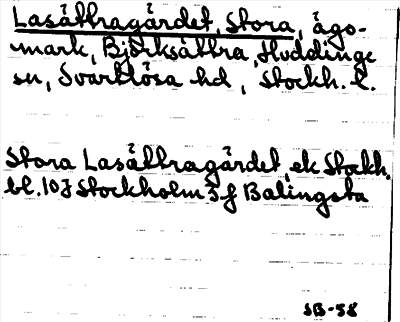 Lasättragärdet, Stora, ägo-
mark, Björksättra, Huddinge
sn, Svartlösa hd, Stockh. l.
Stora Lasättragärdet, ek Stockh.
bl. 10 I Stockholm 5 f Balingsta
SB-58